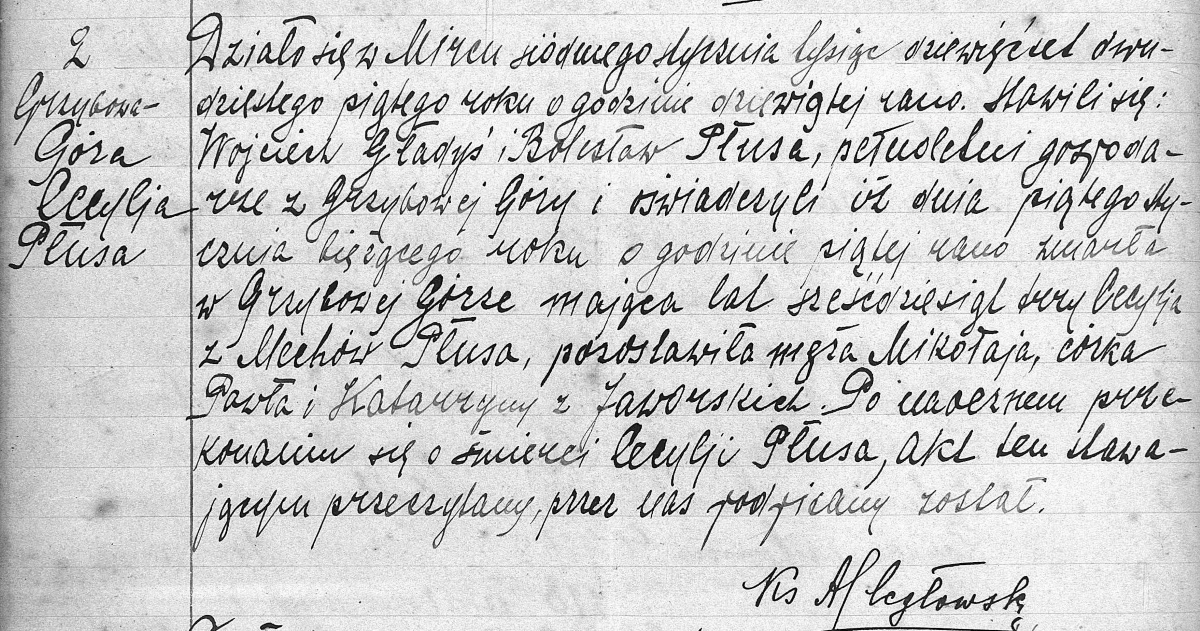 2
Grzybowa-
Góra
Cecylja
Płusa
Działo się w Mircu siódmego stycznia tysiąc dziewięćset dwu-
dziestego piątego roku o godzinie dziewiątej rano. Stawili się:
Wojciech Gładyś i Bolesław Płusa, pełnoletni gospoda-
rze z Grzybowej Góry i oświadczyli iż dnia piątego sty-
cznia bieżącego roku o godzinie piątej rano zmarła
w Grzybowej Górze mająca lat sześćdziesiąt trzy Cecylja
z Mechów Płusa, pozostawiła męża Mikołaja, córka
Pawła i Katarzyny z Jaworskich. Po naocznem prze-
konaniu się o śmierci Cecylji Płusa, akt ten stawa-
jącym przeczytany, przez nas podpisany został.
Ks